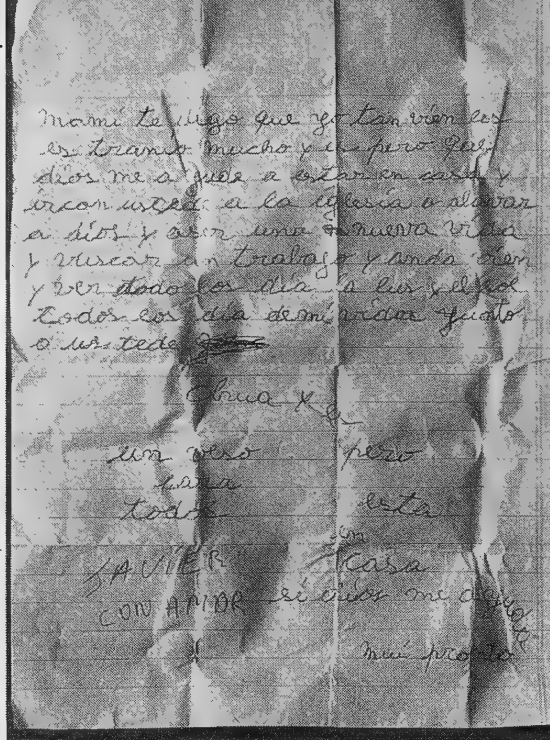 mami te digo que yo tan vien los
es tranio mucho y a pero que
dios me a yude a estar en casa y
ircon usted a la iglesia a alavar
a dios y aser una nueva vida
y vuscar un trabajo y anda vien
y ver todo los día la lus y el sol
todos los día de mi vidar junto
a ustede
un veso pero
para
todos esta
en
JAVIER casa
CON AMOR si dios me ayuda
mui pronto